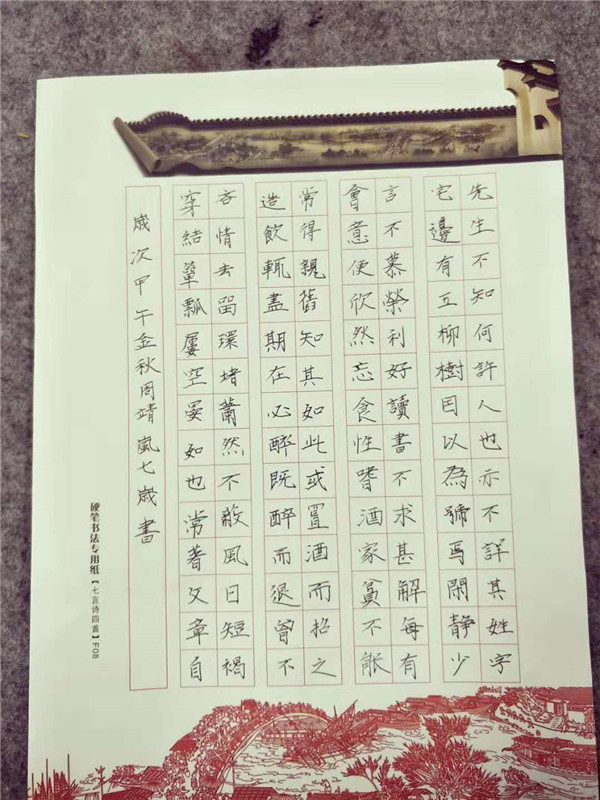 先生不知何許人也亦不詳其姓字
宅邊有五柳樹因以為號焉閑靜少
言不慕榮利好讀書不求甚解每有
會意便欣然忘食性嗜酒家貧不能
常得親舊知其如此或置酒而招之
造飲輒盡期在必醉既醉而退曾不
吝情去留環堵蕭然不蔽風日短褐
穿結簞瓢屢空晏如也常著文章自
歲次甲午金秋周靖嵐七歲書
硬笔书法专用纸【七言诗四首】F08